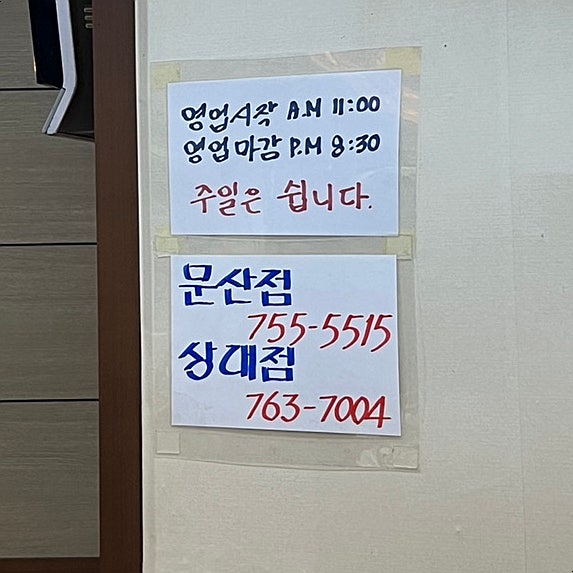 영업시작 A.M 11:00
영업마감 P.M 8:30
주일은 쉽니다.
문산점
755-5515
상대점
763-7004